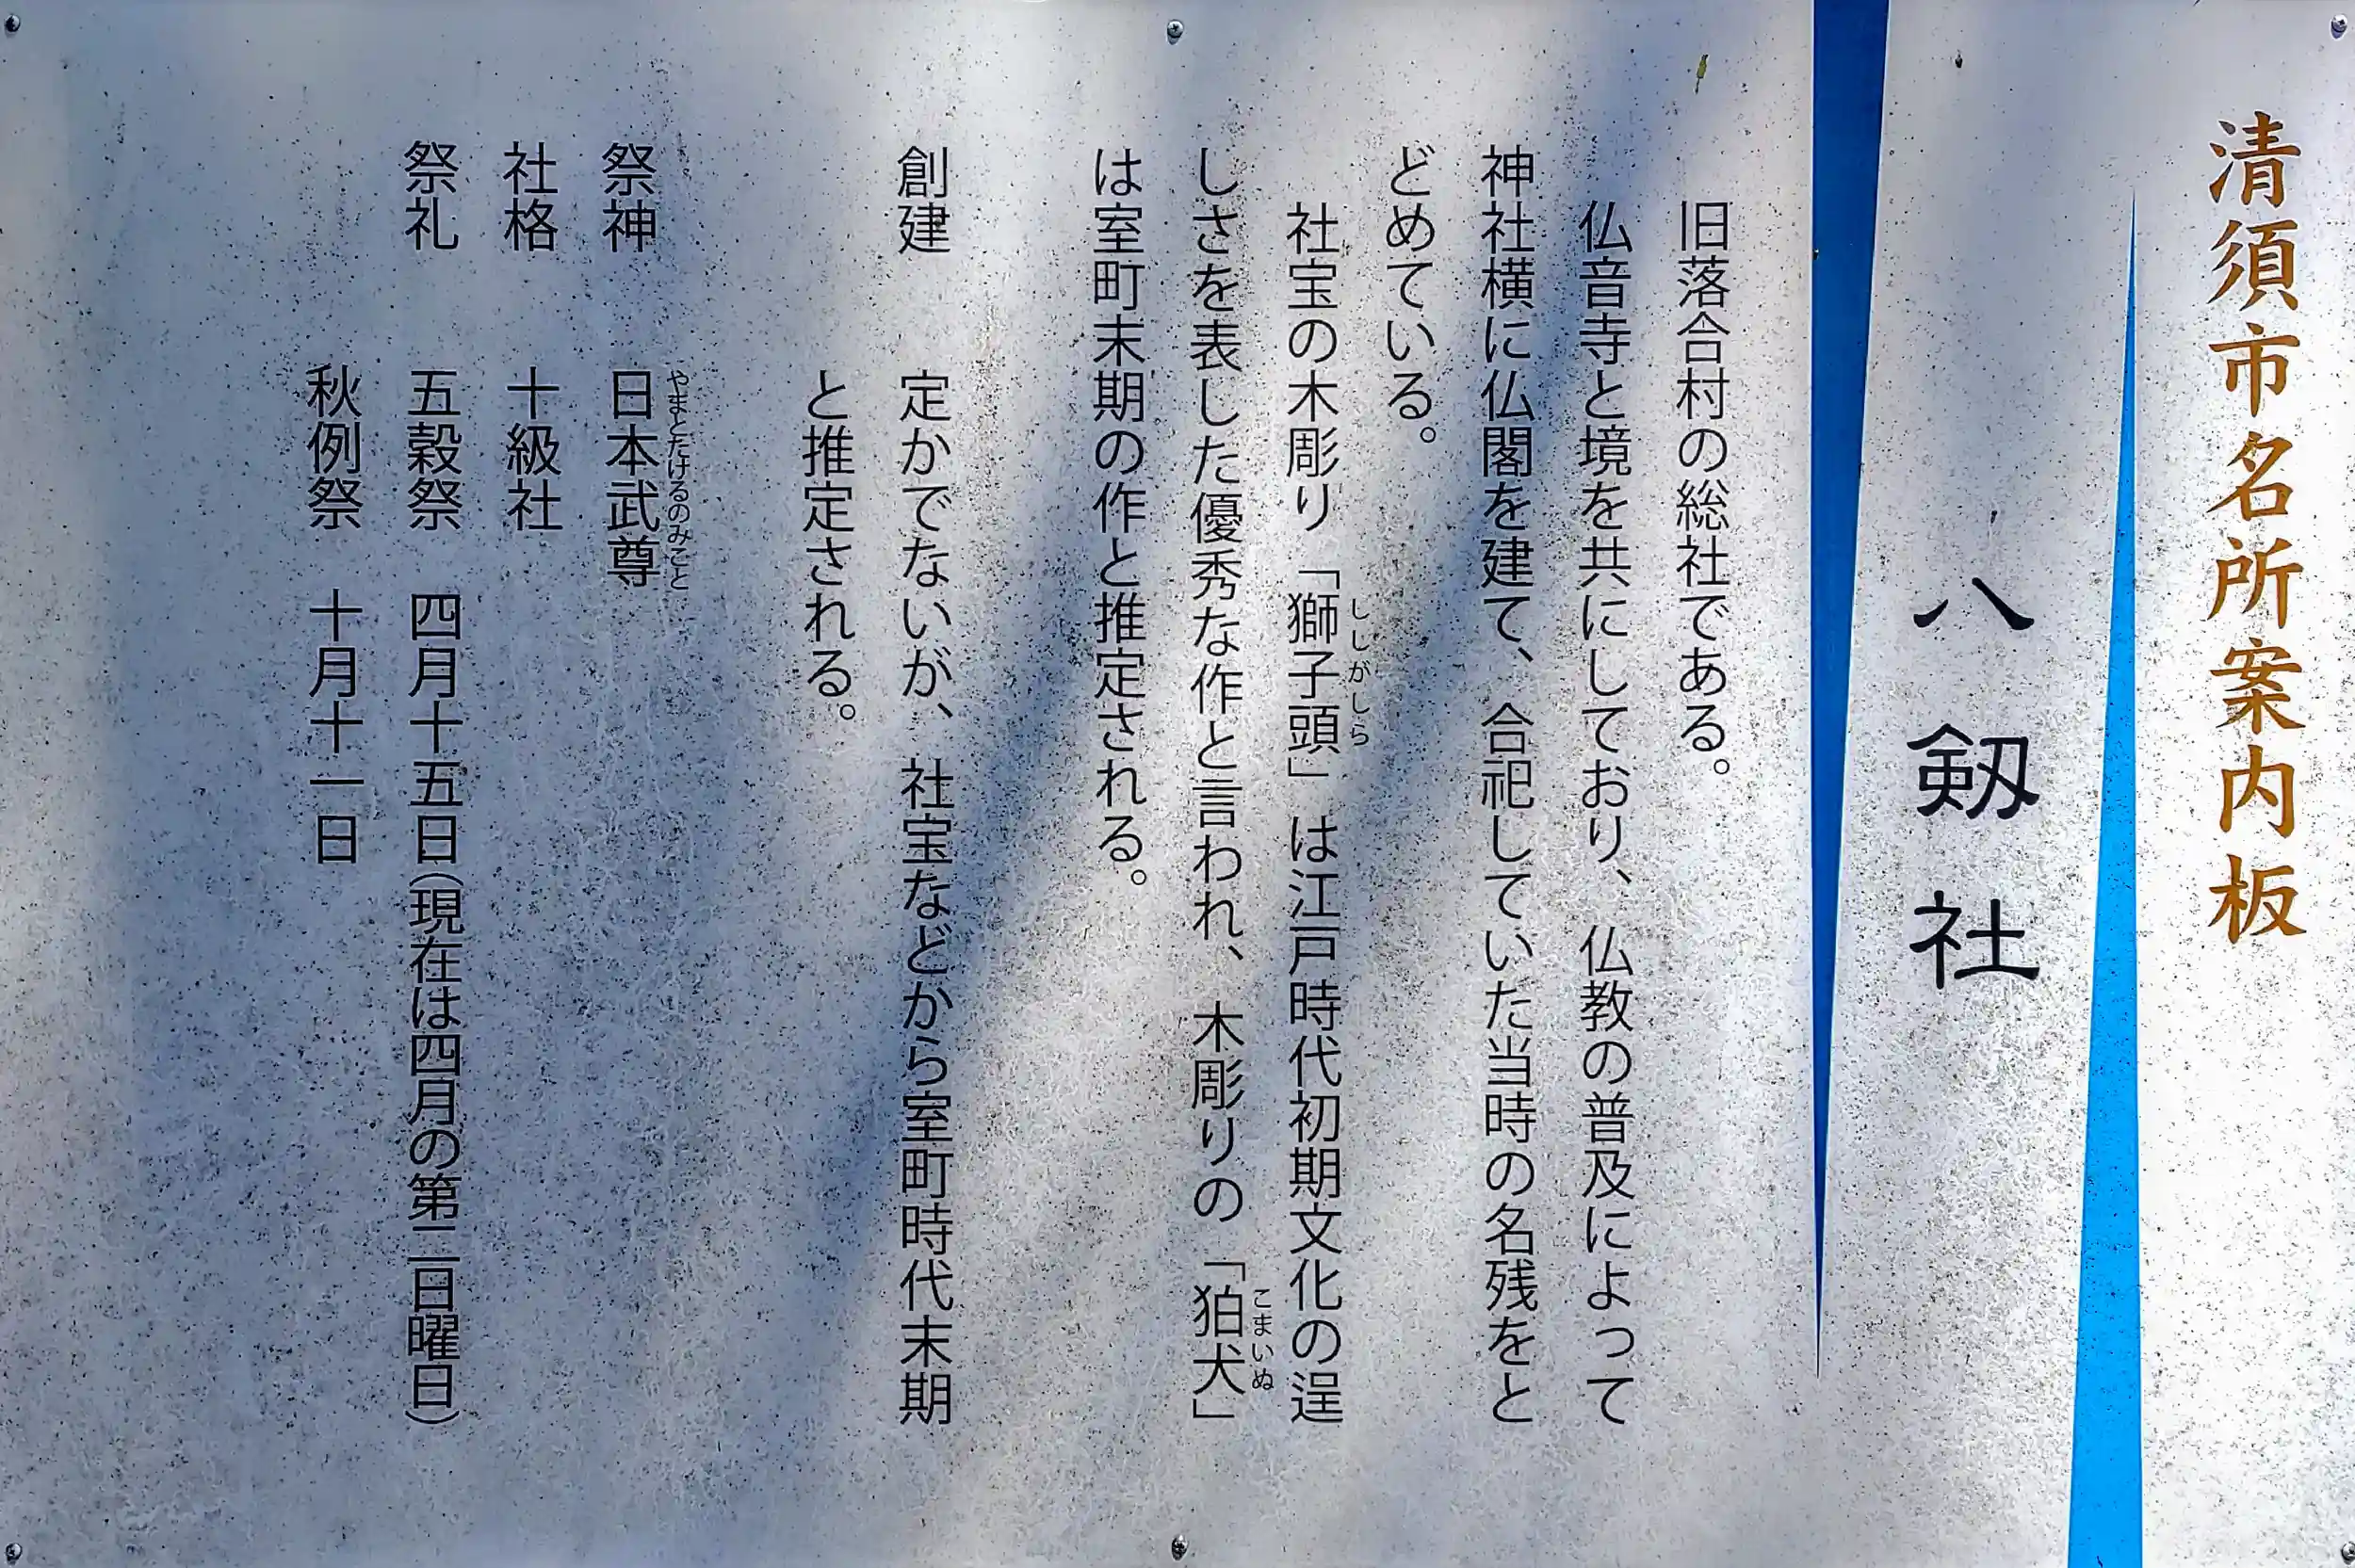 清須市名所案内板
八剱社
旧落合村の総社である。
仏音寺と境を共にしており、仏教の普及によって
神社横に仏閣を建て、合祀していた当時の名残をと
どめている。
社宝の木彫り「獅子頭」は江戸時代初期文化の逞
ししがしら
しさを表した優秀な作と言われ、木彫りの「狛犬」
こまいぬ
は室町末期の作と推定される。
創建 定かでないが、社宝などから室町時代末期
と推定される。
祭神 日本武尊
やまとたけるのみこと
社格 十級社
祭礼 五穀祭 四月十五日(現在は四月の第二日曜日)
秋例祭 十月十一日